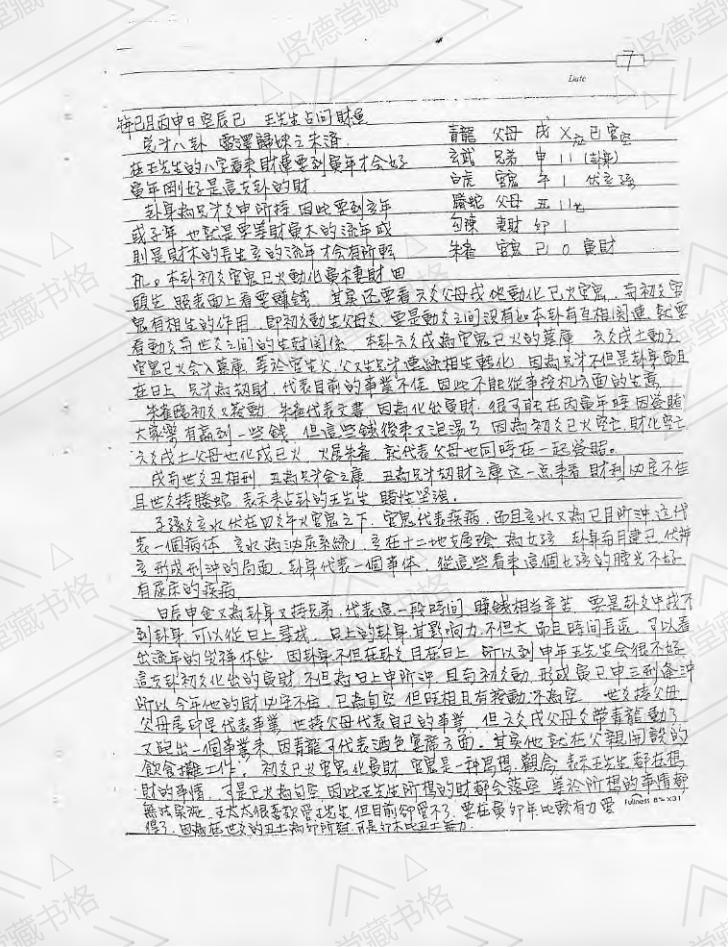 7
Date
年己月丙申日空辰巳 王先生占問財運
兌卦八卦 雷澤歸妹之未濟
在王先生的八字看來財運要到寅年才会好
寅年剛好是這支卦的財
卦身為兄弟爻申所持 因此要到亥年
或子年 也就是要等財寅木的流年或
則是財木的長生亥的流年才会有所轉
机。本卦初爻官鬼巳火動化寅木妻財 回
青龍 父母 戌 X 巳官
玄武 兄弟 申 11 (卦身)
白虎 官鬼 午 1 伏亥孫
騰蛇 父母 丑 11世
勾陳 妻財 卯 1
朱雀 官鬼 巳 O 寅財
頭生 照表面上看要賺錢 其實还要看六爻父母戌地動化巳火官鬼 与初爻官
鬼有相生的作用 即初爻動生父母爻 要是動爻之间沒有如本卦有互相関連 就要
看動爻与世爻之间的生尅関係 本卦六爻戌為官鬼巳火的墓庫 六爻戌土動了
官鬼巳火会入墓庫 等於官生父 父又生兄弟連続相生轉化 因為兄弟不但是卦身而且
在日上 兄弟為劫財 代表目前的事業不佳 因此不能從事投机方面的生意
朱雀臨初爻又發動 朱雀代表文書 因為化出寅財 很可能在丙寅年時因簽賭
大家樂有贏到一些錢 但這些錢後來又泡湯了 因為初爻巳火空亡 財化空亡
六爻戌土父母也化成巳火 火屬朱雀 就代表父母也同時在一起簽賭。
戌与世爻丑相刑 丑為兄弟金之庫 丑為兄弟劫財之庫 这一点来看 財利必定不佳
且世爻持騰蛇 表示来占卦的王先生 賭性坚强。
子孫爻亥水伏在四爻午火官鬼之下 官鬼代表疾病 而且亥水又為巳月所沖 这代
表一個病体 亥水為泌尿系統 亥在十二地支屬陰 為女孩 卦身与月建巳 伏神
亥形成刑沖的局面 卦身代表一個事体 從這些看来這個女孩的膀光不好
有尿床的疾病
日辰申金又為卦身又持兄弟 代表這一段時间 賺錢相当辛苦 要是卦爻中找不
到卦身 可以從日上尋找 日上的卦身其影响力不但大 而且時间長遠 可以看
出流年的吉祥休咎 因卦身不但在卦爻且在日上 所以到申年王先生会很不好
這支卦初爻化出的寅財 不但為日上申所沖 且与初爻動 形成寅巳申三刑逢沖
所以今年他的財必守不住 巳為旬空 但旺相且有發動 不為空 世爻持父母
父母屬印星代表事業 世持父母代表自已的事業 但六爻戌父母爻帶青龍動了
又跑出一個事業来 因青龍可代表酒色宴席方面。其實他就在父親開設的
飲食攤工作。 初爻巳火官鬼化寅財 官鬼是一种思想、觀念 表示王先生都在想
財的事情 可是巳火為旬空 因此王先生所想的財都会落空 等於所想的事情都
無法实现 王太太很喜歡管王先生 但目前卻管不了 要在寅卯年比較有力管
得了 因為在世爻的丑土為卯所尅
Fullness B5 x31